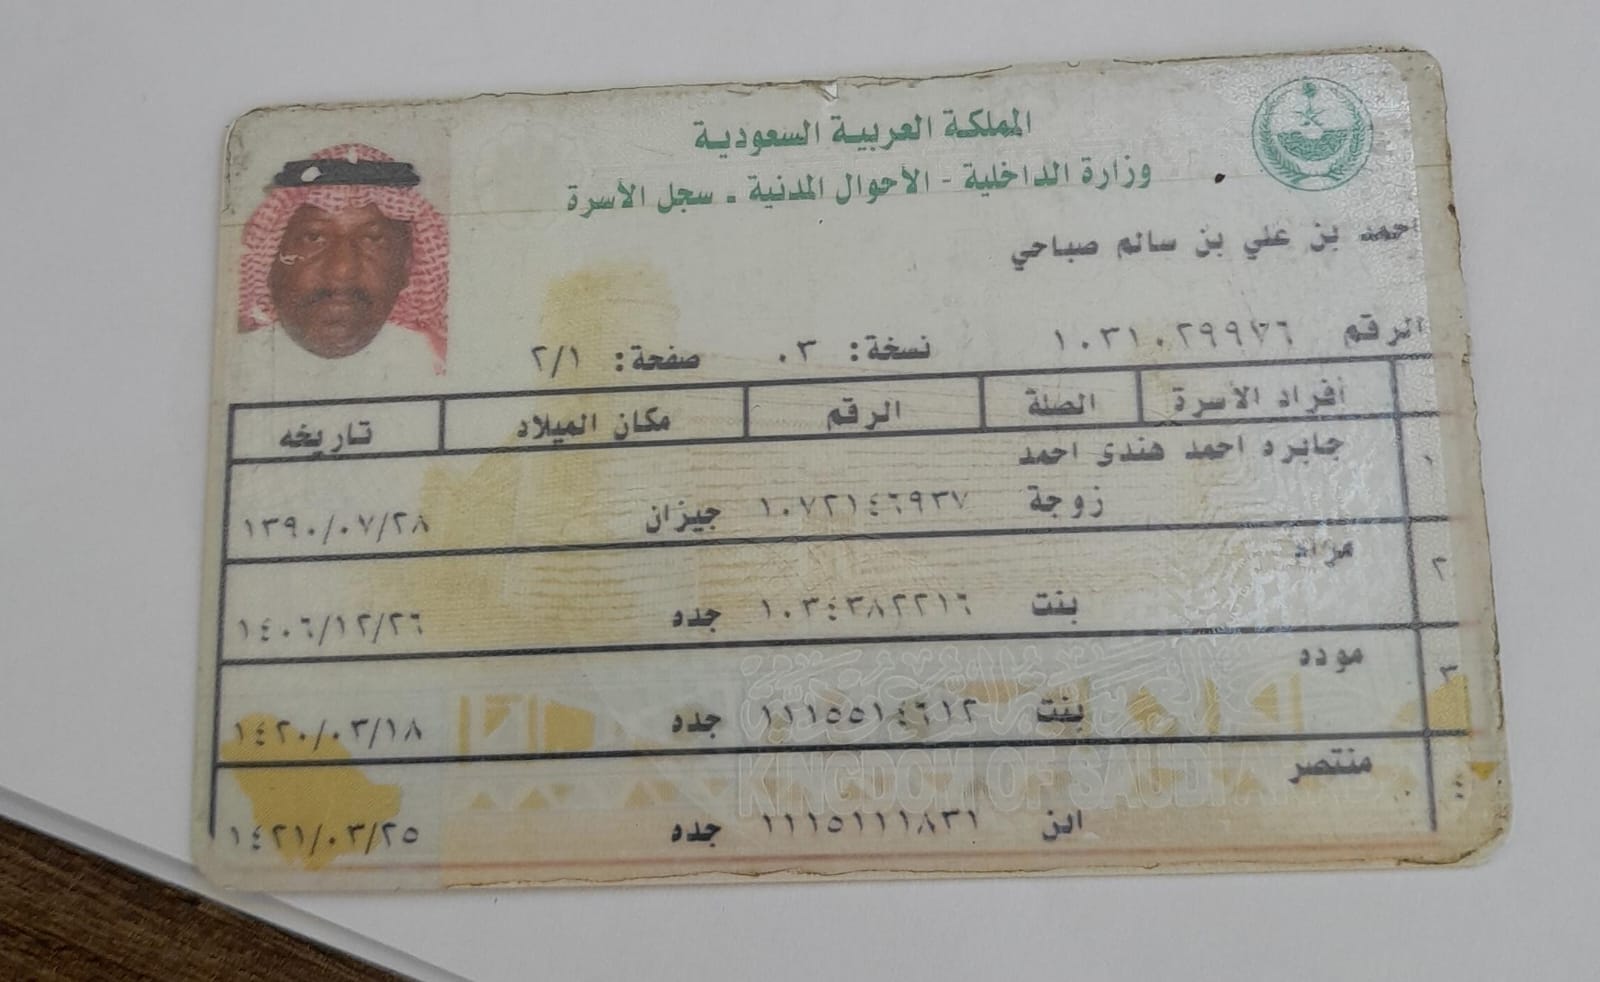 المملكة العربية السعودية
وزارة الداخلية - الأحوال المدنية - سجل الأسرة
احمد بن علي بن سالم صباحي
الرقم ١٠٣١٠٢٩٩٧٦ نسخة: ٠٣ صفحة: ٢/١
أفراد الأسرة الصلة الرقم مكان الميلاد تاريخه
١ جابره احمد هندى احمد
زوجة ١٠٧٢١٤٦٩٣٧ جيزان ١٣٩٠/٠٧/٢٨
٢ مراد
بنت ١٠٣٤٣٨٢٢١٦ جده ١٤٠٦/١٢/٢٦
٣ موده
بنت ١١١٥٥١٤٦١٢ جده ١٤٢٠/٠٣/١٨
٤ منتصر
ابن ١١١٥١١١٨٣١ جده ١٤٢١/٠٣/٢٥
KINGDOM OF SAUDI ARABIA